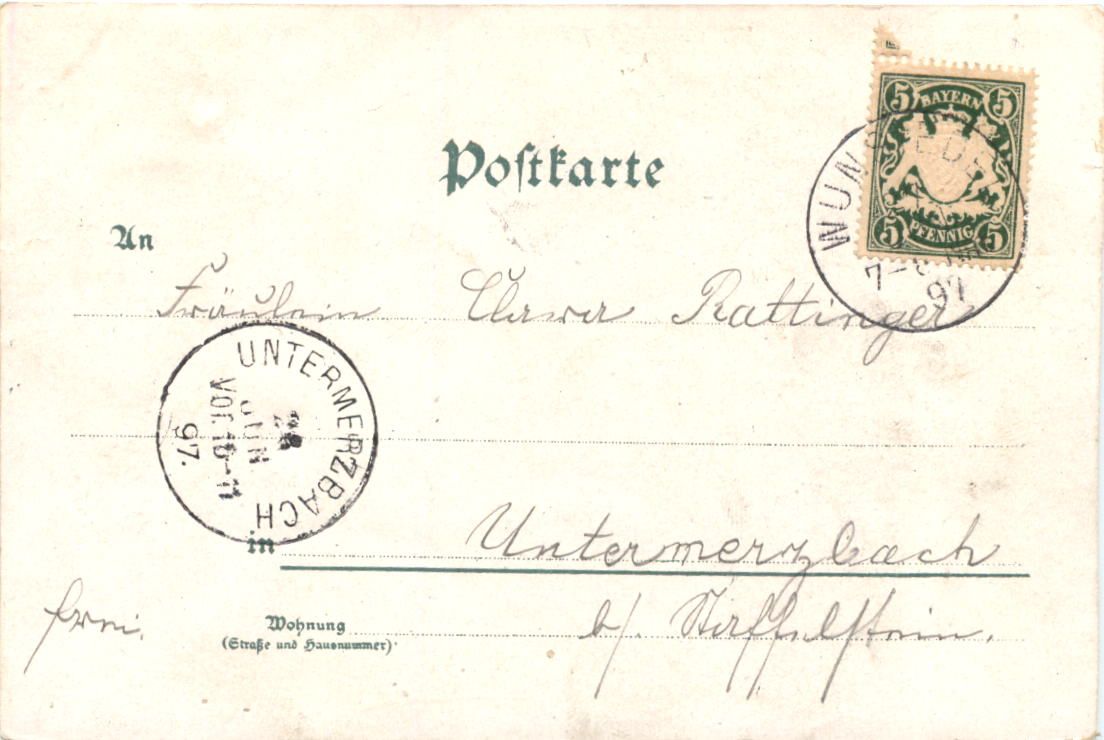 Postkarte
5 BAYERN 5
5 PFENNIG 5
WUNSIEDEL
7-8
97
An
Fräulein Clara Rattinger
UNTERMERZBACH
JUN
VOR. 10-11
97.
in Untermerzbach
frei.
Wohnung b/. Staffelstein.
(Straße und Hausnummer)